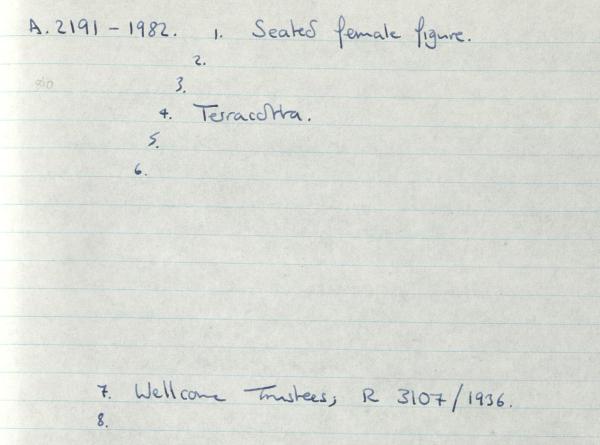 A. 2191 - 1982. 1. Seated female figure.
2.
3.
4. Terracotta.
5.
6.
7. Wellcome Trustees, R 3107/1936.
8.